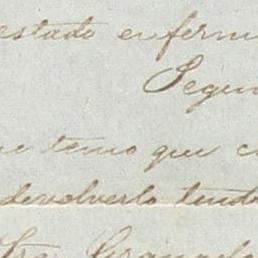 estado enferm
Segun
ue temo que c
devolverlo tend
Sra. Granad